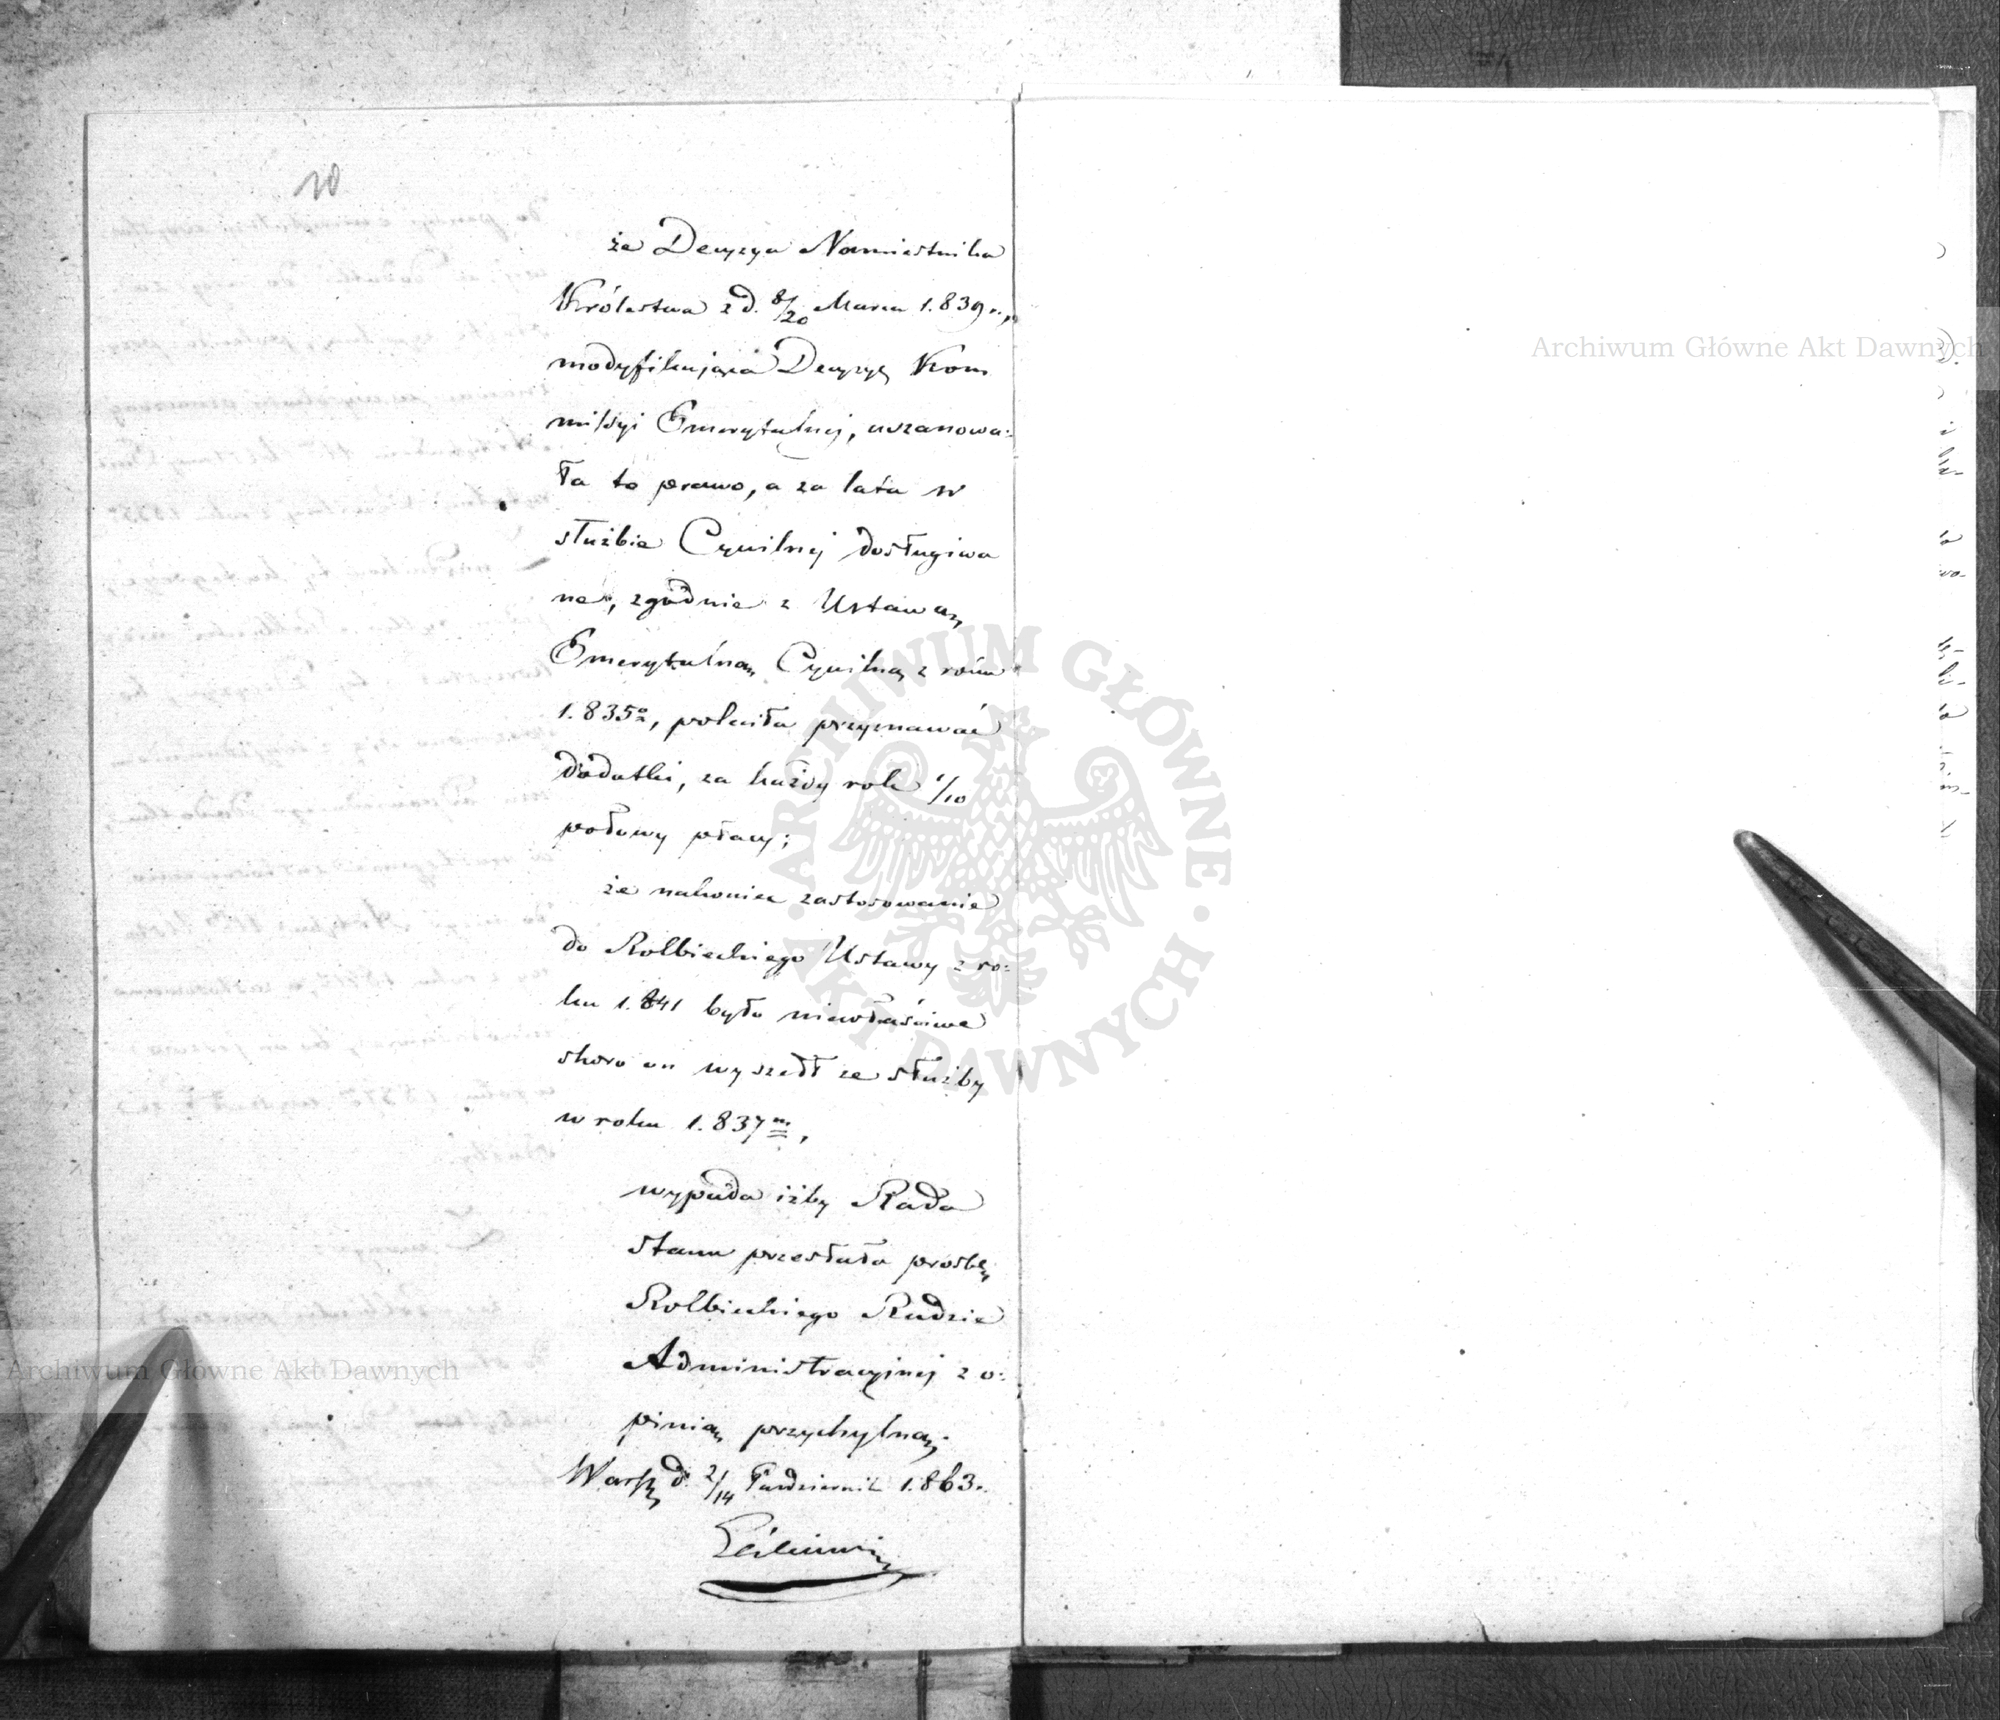 10
że Decyzya Namiestnika
Królestwa z d. 8/20 Marca 1.839 r.,
modyfikująca Decyzyę Kom
missyi Emerytalnej, uszanowa-
ła to prawo, a za lata w
służbie Cywilnej dosługiwa
ne, zgodnie z Ustawą
Emerytalną Cywilną z roku
1.835o, poleciła przyznawać
dodatki, za każdy rok 1/10
połowy płacy;
że nakoniec zastosowanie
do Kolbieckiego Ustawy z ro-
ku 1.841 było niewłaściwe
skoro on wyszedł ze służby
w roku 1.837m,
wypada iżby Rada
Stanu przesłała prośbę
Kolbieckiego Radzie
Administracyjnej z o-
pinią przychylną;
Warsz. d. 2/14 Październik 1.863.
Archiwum Główne Akt Dawnych
Archiwum Główne Akt Dawnych
ARCHIWUM GŁÓWNE AKT DAWNYCH